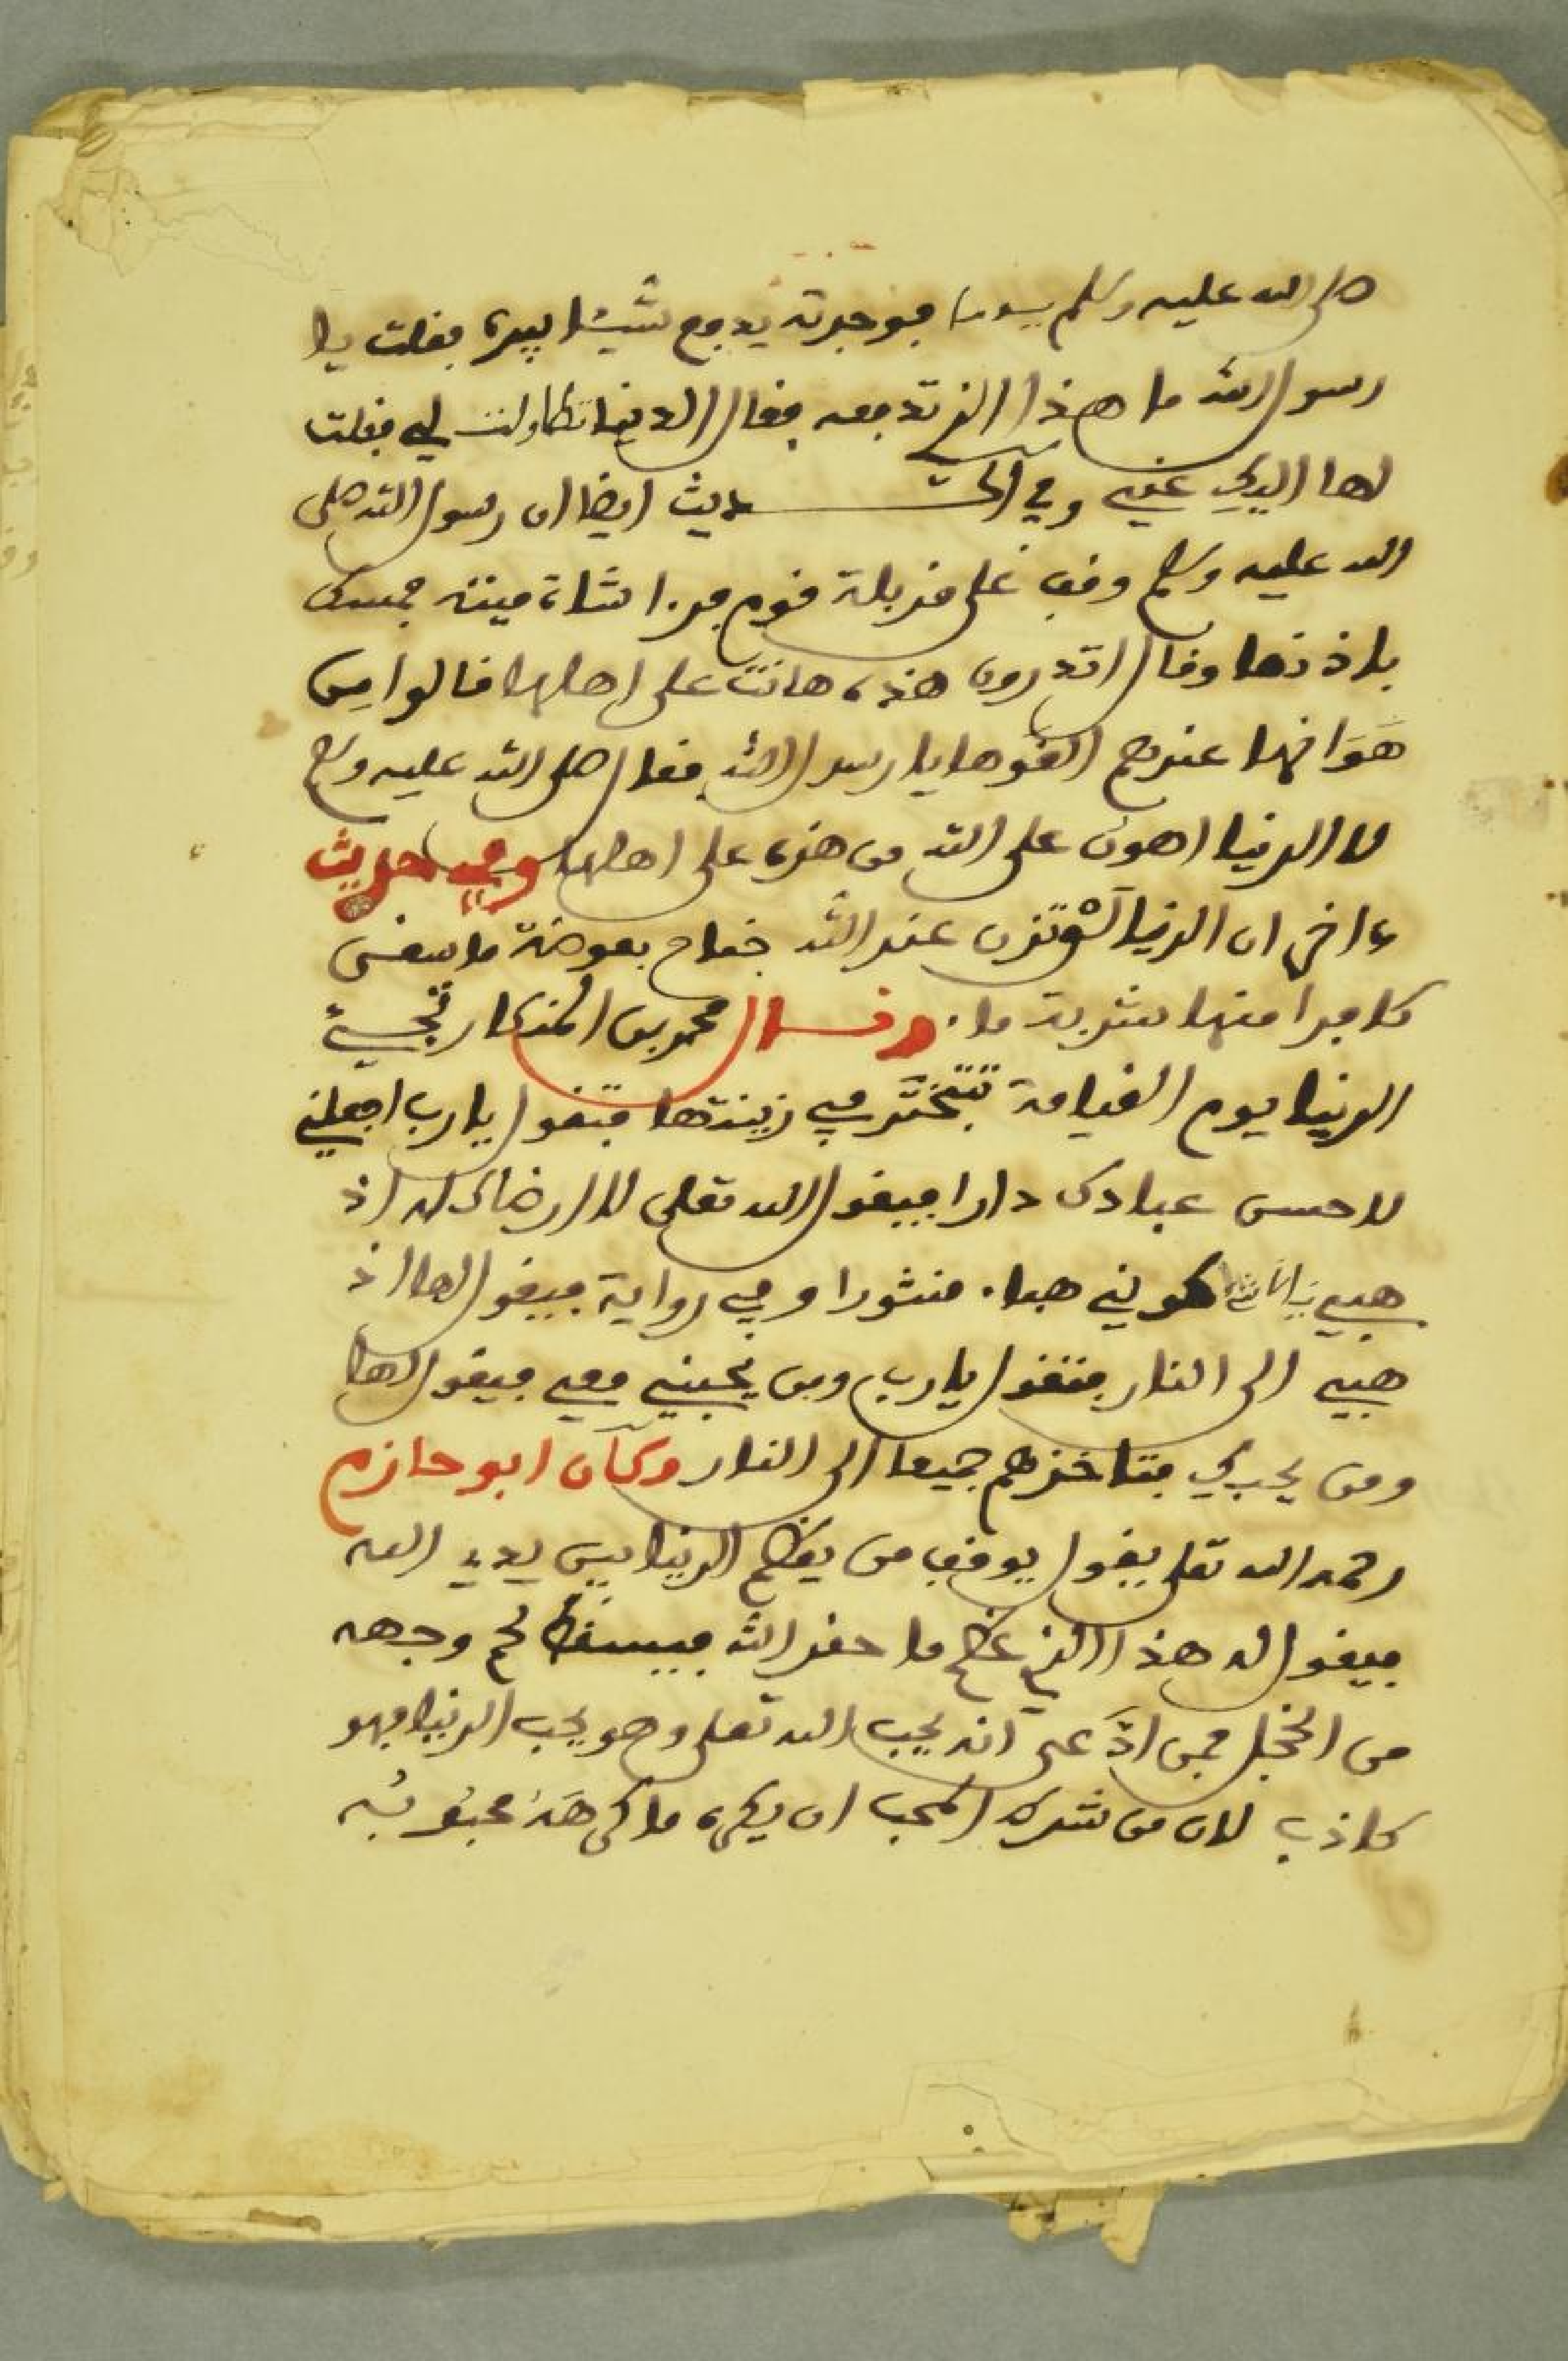 صلى الله عليه وسلم يوما فوجدته يدفع شيئا بيده فقلت يا
رسول الله ما هذا الذي تدفعه فقال الدنيا تطاولت لي فقلت
لها اليك عني وفي الحديث ايضا ان رسول الله صلى
الله عليه وسلم وقف على مزبلة قوم فرءا شاة ميتة فمسك
باذنها وقال اتدرون هذه هانت على اهلها قالوا من
هوانها عندهم القوها يا رسول الله فقال صلى الله عليه وسلم
للدنيا اهون على الله من هذه على اهلها وفي حديث
ءاخر ان الدنيا لو تزن عند الله جناح بعوضة ما سقى
كافرا منها شربة ماء وقال محمد بن المنكدر تجيئ
الدنيا يوم القيامة تتبختر في زينتها فتقول يا رب اجعلني
لاحسن عبادك دارا فيقول الله تعلى لا ارضاك له اذ
هبي كوني هباء منثورا وفي رواية فيقول لها اذ
هبي الى النار فتقول يا رب ومن يحبني معي فيقول لها
ومن يحبك فتاخذهم جميعا الى النار وكان ابو حازم
رحمه الله تعلى يقول يوقف من يعظم الدنيا بين يدي الله
فيقول له هذا الذي عظم ما حقر الله فيسقط لحم وجهه
من الخجل فمن ادعى انه يحب الله تعلى وهو يحب الدنيا فهو
كاذب لان من شرط المحب ان يكره ما كرهه محبوبه